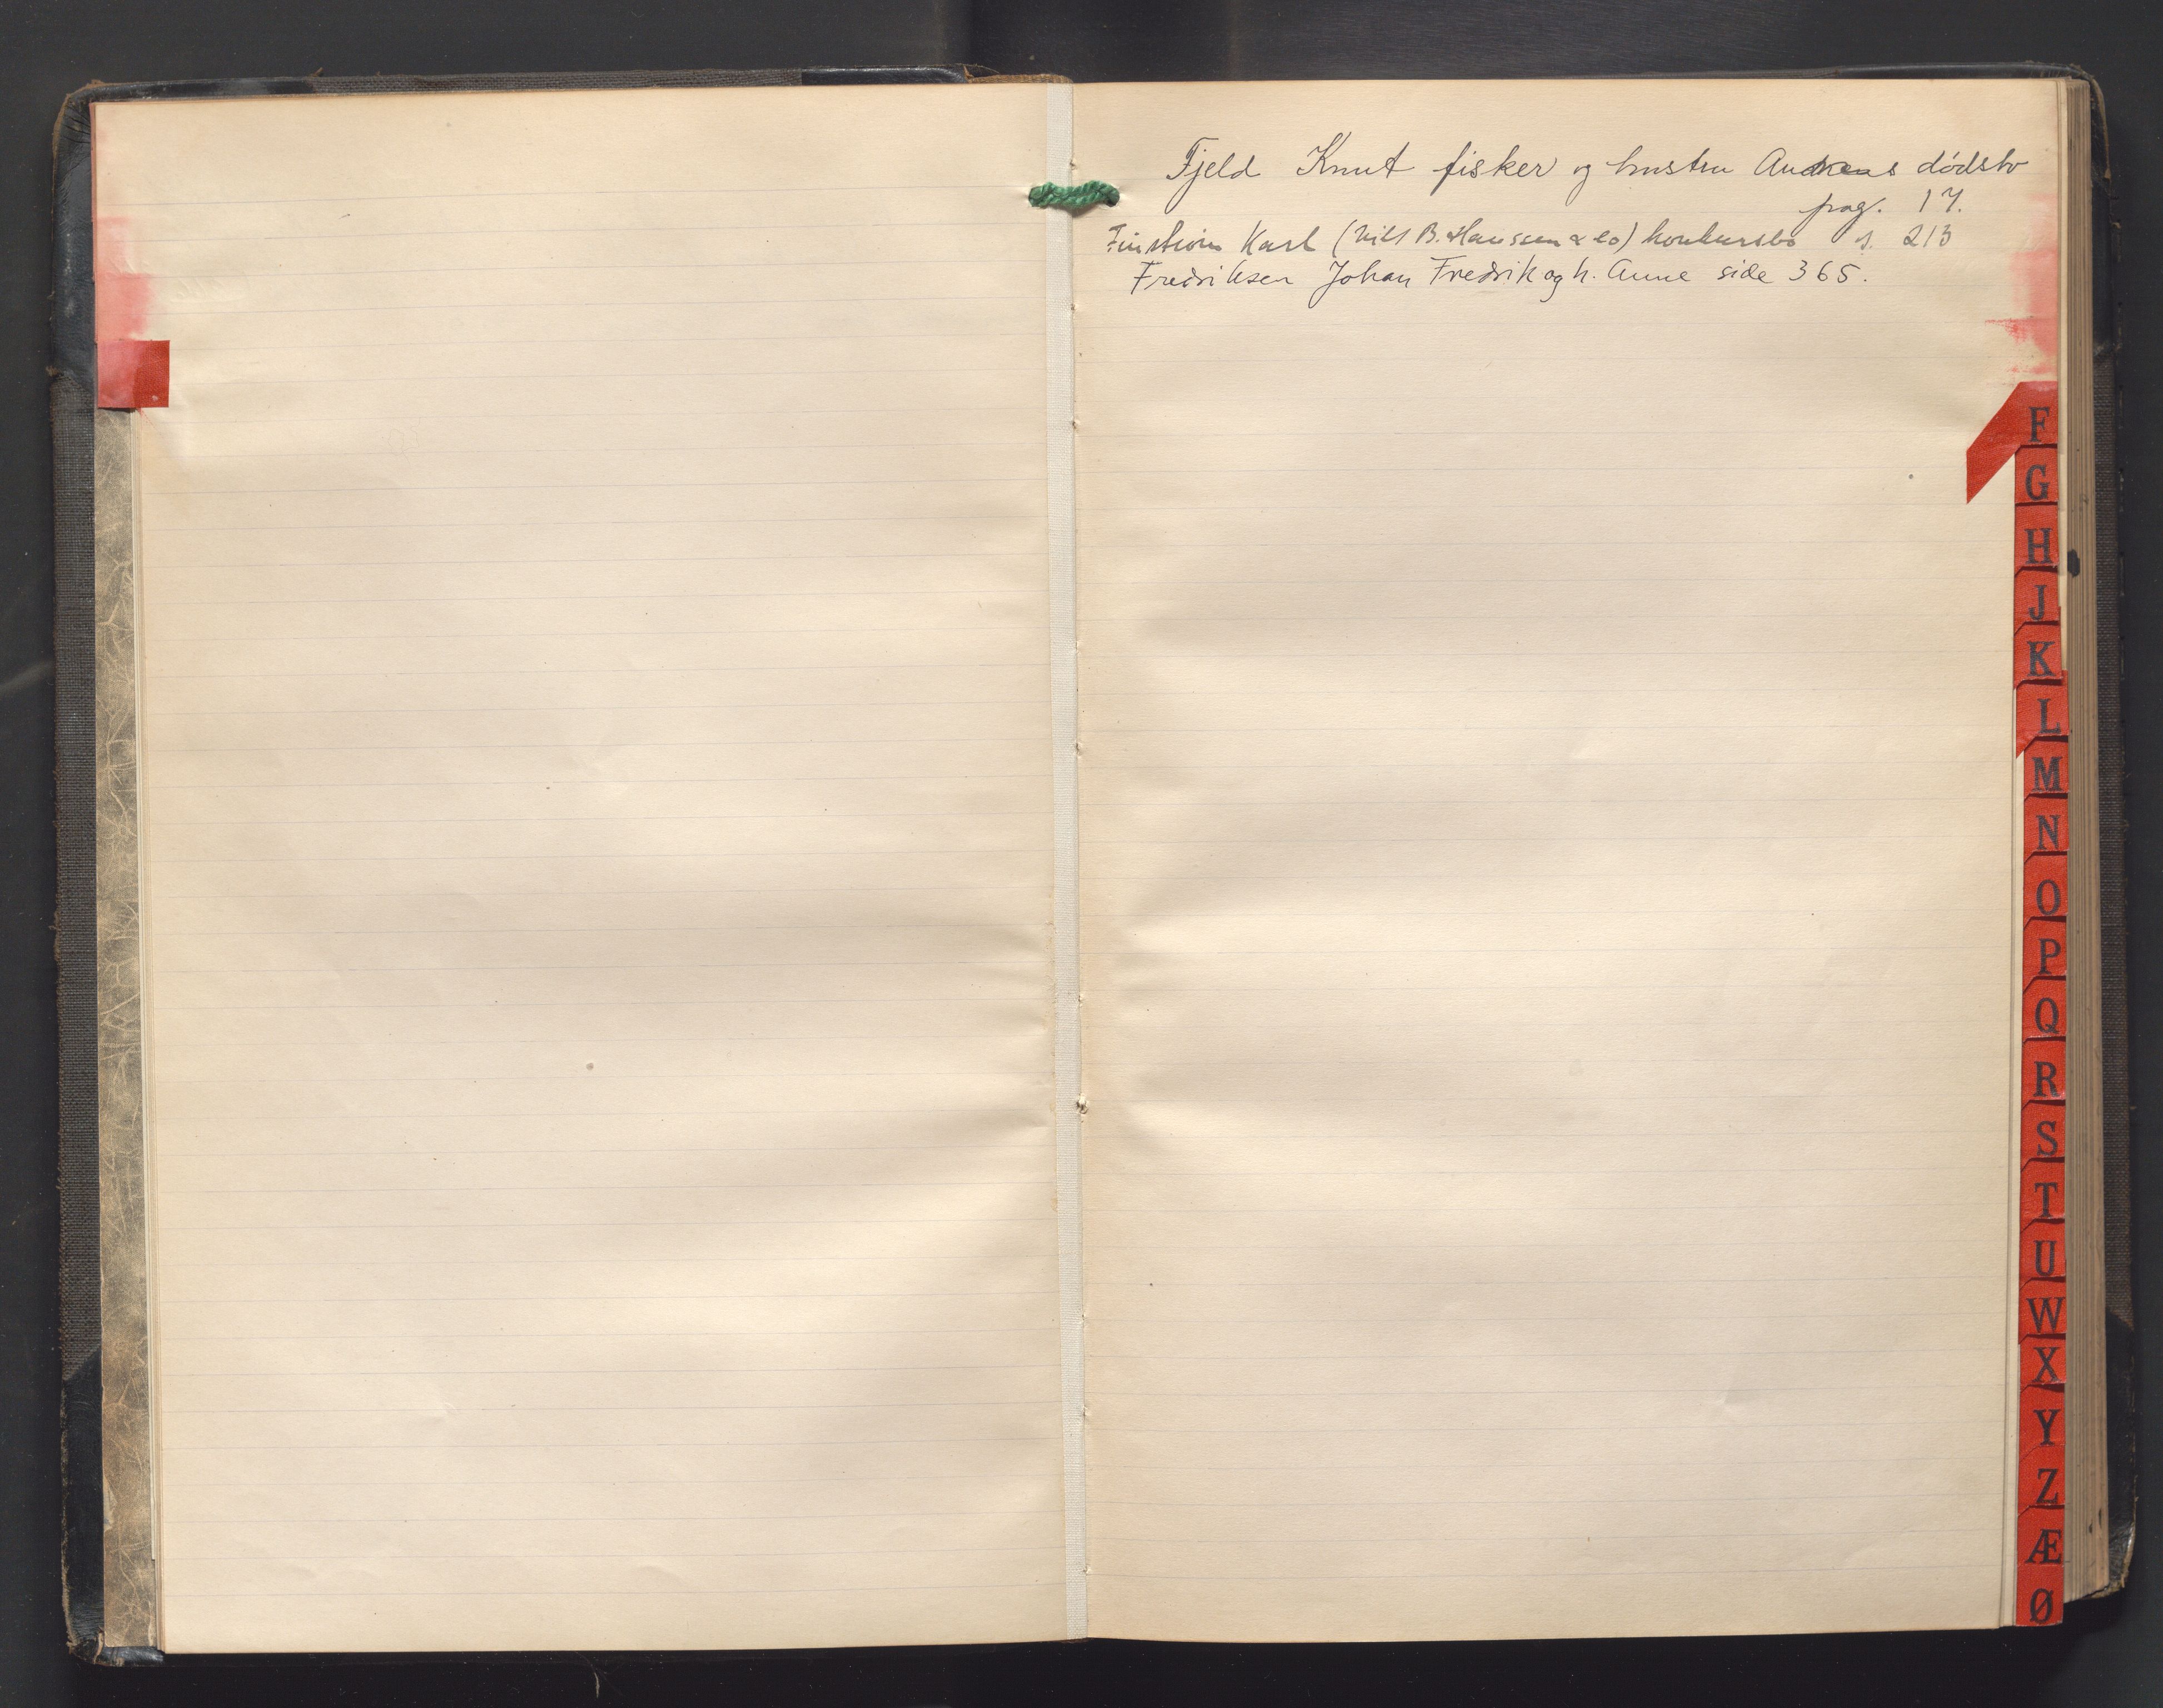 Fjeld Knut fisker og hustru Andreas dødsbo
pag. 17.
Karl (Nils B. Hanssen & Co) konkursbo s. 213
Fredriksen Johan Fredrik og h. Anne side 365.
F
G
H
J
K
L
M
N
O
P
Q
R
S
T
U
W
X
Y
Z
Æ
Ø